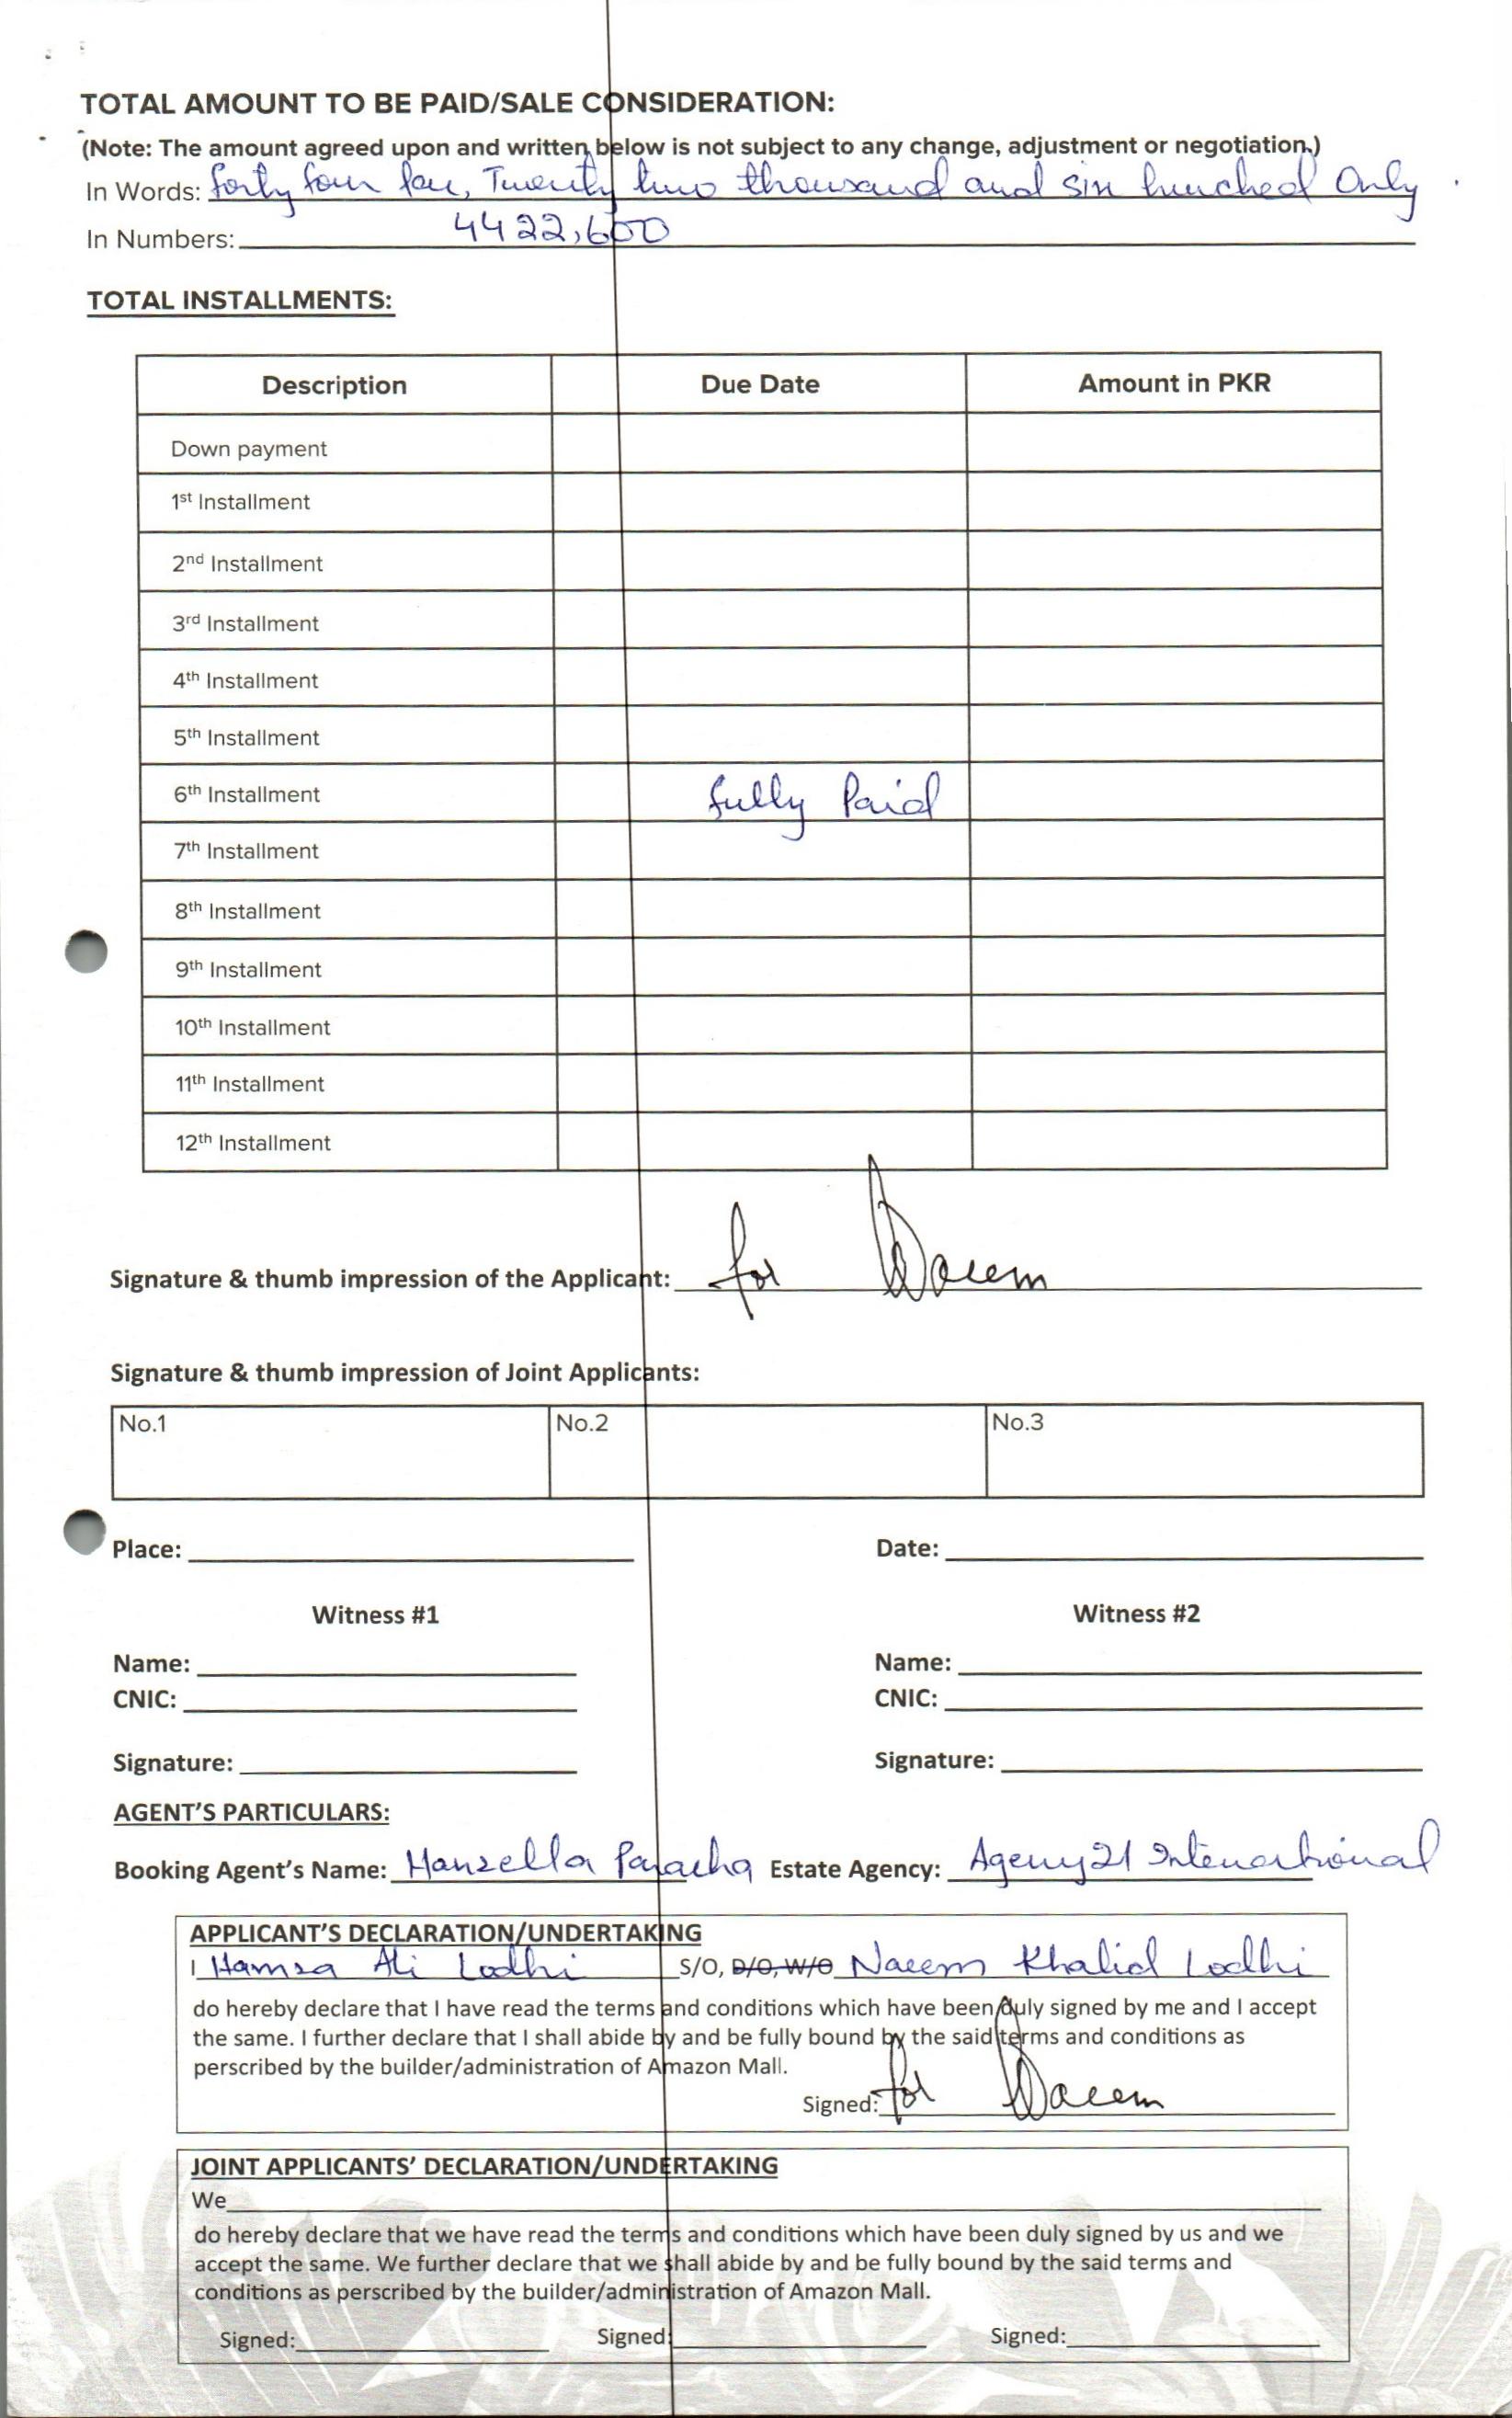 TOTAL AMOUNT TO BE PAID/SALE CONSIDERATION:
(Note: The amount agreed upon and written below is not subject to any change, adjustment or negotiation.)
In Words: forty four lac, Twenty two thousand and six hundred Only
In Numbers: 4422,600
TOTAL INSTALLMENTS:
Description Due Date Amount in PKR
Down payment
1st Installment
2nd Installment
3rd Installment
4th Installment
5th Installment
6th Installment fully Paid
7th Installment
8th Installment
9th Installment
10th Installment
11th Installment
12th Installment
Signature & thumb impression of the Applicant: for Naeem
Signature & thumb impression of Joint Applicants:
No.1 No.2 No.3
Place: Date:
Witness #1 Witness #2
Name: Name:
CNIC: CNIC:
Signature: Signature:
AGENT'S PARTICULARS:
Booking Agent's Name: Hanzella Paracha Estate Agency: Agency21 International
APPLICANT'S DECLARATION/UNDERTAKING
I Hamza Ali Lodhi S/O, D/O, W/O Naeem Khalid Lodhi
do hereby declare that I have read the terms and conditions which have been duly signed by me and I accept
the same. I further declare that I shall abide by and be fully bound by the said terms and conditions as
perscribed by the builder/administration of Amazon Mall.
Signed: for Naeem
JOINT APPLICANTS' DECLARATION/UNDERTAKING
We
do hereby declare that we have read the terms and conditions which have been duly signed by us and we
accept the same. We further declare that we shall abide by and be fully bound by the said terms and
conditions as perscribed by the builder/administration of Amazon Mall.
Signed: Signed: Signed: